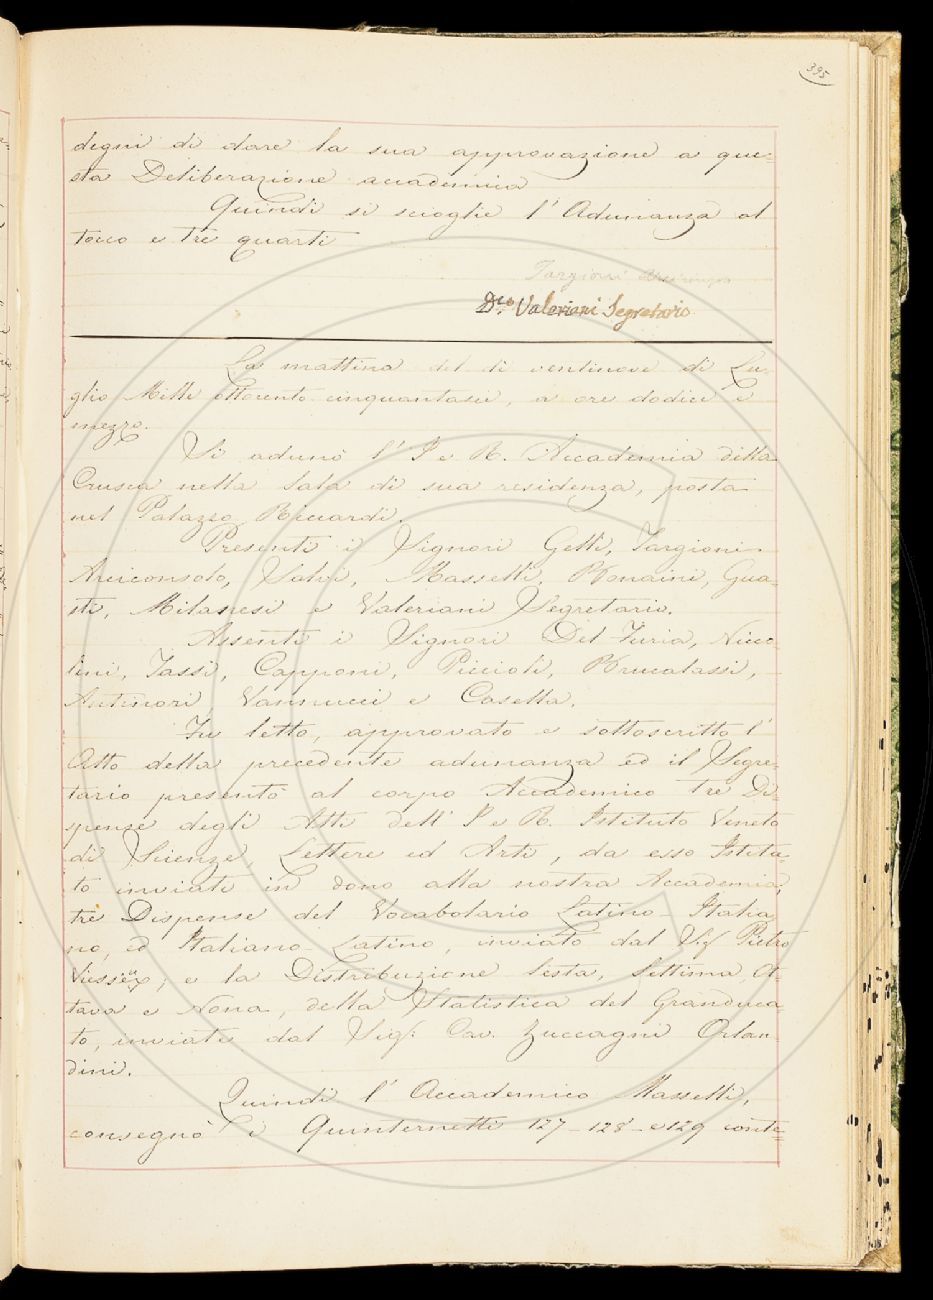 395
degni di dare la sua approvazione a que=
sta Deliberazione accademica
Quindi si scioglie l'Adunanza al
tocco e tre quarti
Targioni Arciconsolo
Dco. Valeriani Segretario
La mattina del dì ventinove di Lu-
glio Mille ottocento cinquantasei, a ore dodici e
mezzo.
Si adunò l'I e R. Accademia della
Crusca nella Sala di sua residenza, posta
nel Palazzo Riccardi.
Presenti i Signori Gelli, Targioni
Arciconsolo, Salvi, Masselli, Bonaini, Gua=
sti, Milanesi e Valeriani Segretario.
Assenti i Signori Del Furia, Nicco=
lini, Tassi, Capponi, Piccioli, Brucalassi,
Antinori, Vannucci e Casella.
Fu letto, approvato e sottoscritto l'
Atto della precedente adunanza ed il Segre=
tario presentò al corpo Accademico tre Di=
spense degli Atti dell'I e R. Istituto Veneto
di Scienze, Lettere ed Arti, da esso Istitu=
to inviate in dono alla nostra Accademia,
tre Dispense del Vocabolario Latino-Italia
no, ed Italiano-Latino, inviato dal Sig Pietro
Viessëx; e la Distribuzione Sesta, Settima, Ot=
tava e Nona, della Statistica del Granduca=
to, inviate dal Sig: Cav. Zuccagni Orlan=
dini.
Quindi l'Accademico Masselli,
consegnò i Quinternetti 127-128-e129 conte=